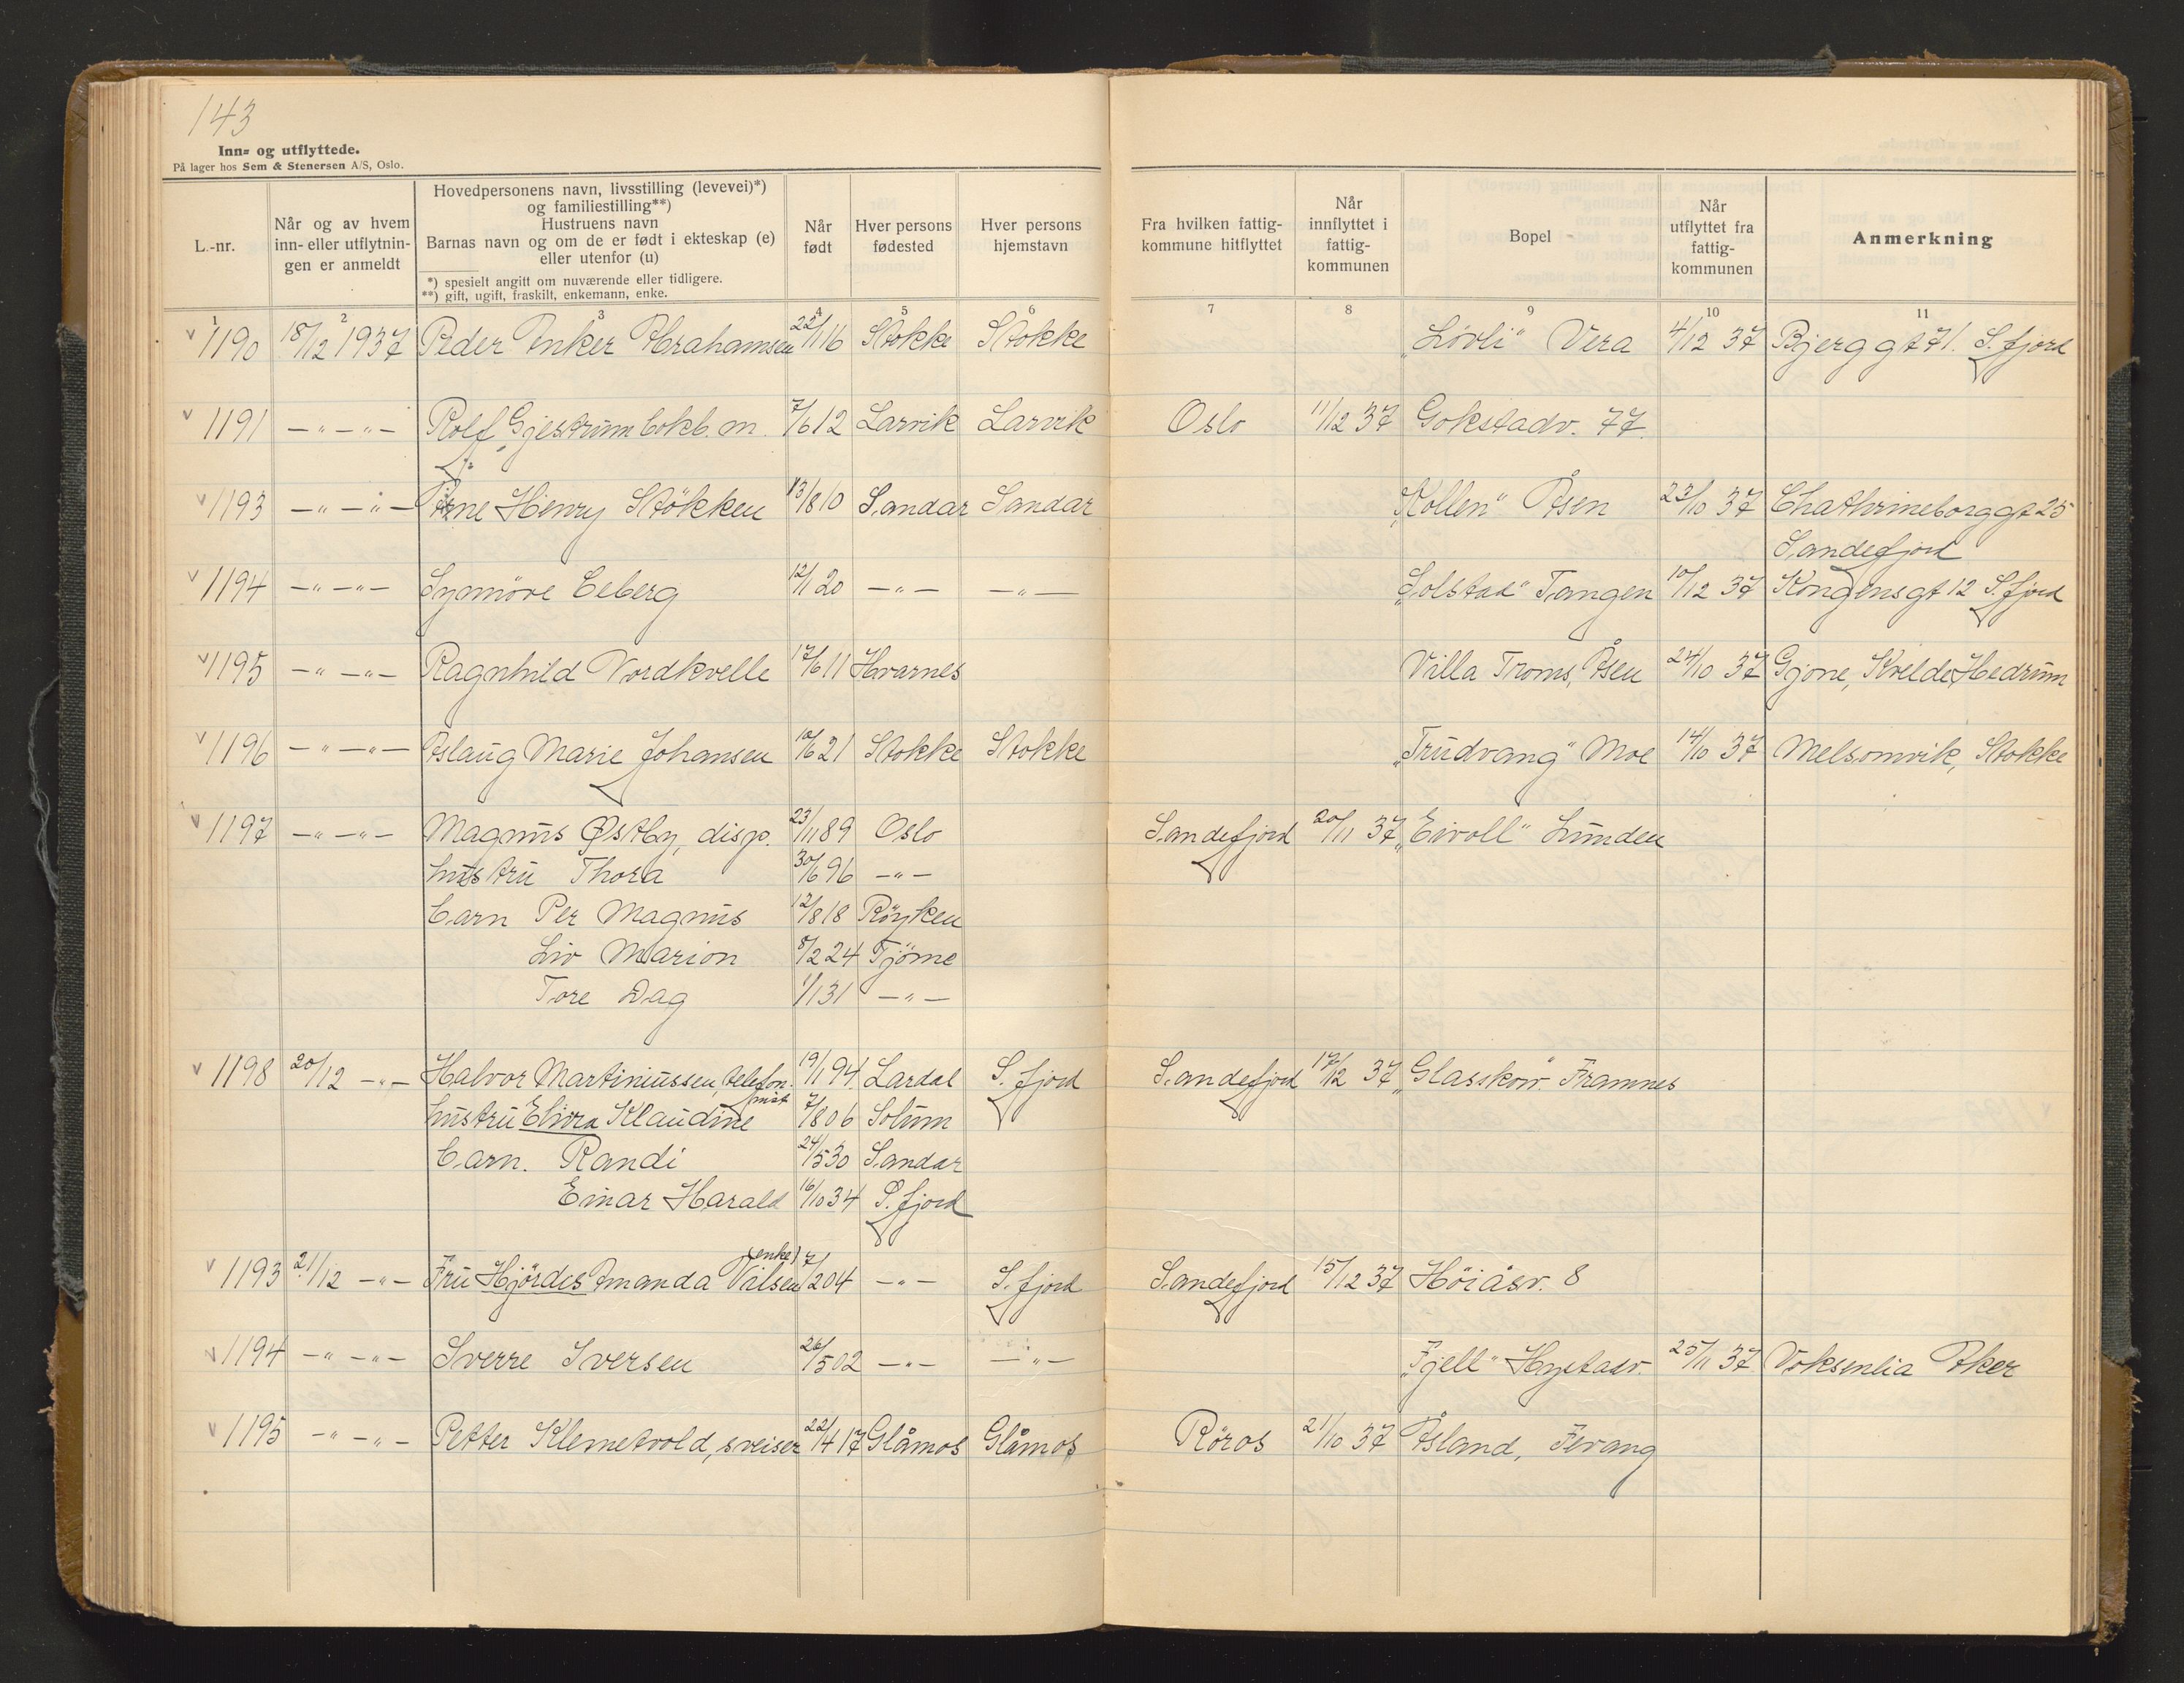 143
Inn- og utflyttede.
På lager hos Sem & Stenersen A/S, Oslo.
L.-nr.
Når og av hvem inn- eller utflytningen er anmeldt
Hovedpersonens navn, livsstilling (levevei)*)
og familiestilling**)
Hustruens navn
Barnas navn og om de er født i ekteskap (e)
eller utenfor (u)
*) spesielt angitt om nuværende eller tidligere.
**) gift, ugift, fraskilt, enkemann, enke.
Når født
Hver persons fødested
Hver persons hjemstavn
Fra hvilken fattigkommune hitflyttet
Når innflyttet i fattigkommunen
Bopel
Når utflyttet fra fattigkommunen
Anmerkning
1 2 3 4 5 6 7 8 9 10 11
v 1190 18/12 1937 Peder Anker Abrahamsen 22/1 16 Stokke Stokke „Lövli" Vera 4/12 37 Bjerggt 71. S.fjord
v 1191 -"- -"- Rolf Gjestrum bokb. m. 7/6 12 Larvik Larvik Oslo 11/12 37 Gokstadv. 77.
v 1193 -"- -"- Arne Henry Stökken 13/8 10 Sandar Sandar „Kollen" Åsen 23/10 37 Chathrineborggt 25
Sandefjord
v 1194 -"- -"- Synnöve Ceberg 12/1 20 -"- -"- „Solstad" Tangen 10/12 37 Kongensgt 12 S.fjord
v 1195 -"- -"- Ragnhild Nordkvelle 17/6 11 Hvarnes Villa Troms, Åsen 24/10 37 Gjone, Kvelde, Hedrum
v 1196 -"- -"- Aslaug Marie Johansen 10/6 21 Stokke Stokke „Trudvang" Moe 14/10 37 Melsomvik, Stokke
v 1197 -"- -"- Magnus Østby, disp. 23/11 89 Oslo Sandefjord 20/11 37 „Eivoll" Lunden
hustru Thora 30/6 96 -"-
barn Per Magnus 12/8 18 Röyken
Liv Marion 8/2 24 Tjöme
Tore Dag 1/1 31 -"-
v 1198 20/12 -"- Halvor Martiniussen, telefon. 19/1 94 Lardal S.fjord Sandefjord 17/12 37 „Glasskow" Framnes
mist
hustru Elvira Klaudine 7/8 06 Solum
barn. Randi 24/5 30 Sandar
Einar Harald 16/10 34 S.fjord
(enke)
v 1193 21/12 -"- Fru Hjördis Amanda Nilsen 7/2 04 -"- S.fjord Sandefjord 15/12 37 Höiåsv. 8
v 1194 -"- -"- Sverre Iversen 26/5 02 -"- -"- „Fjell" Hystadv. 25/11 37 Voksenlia Aker
v 1195 -"- -"- Petter Klemetvold, sveiser 22/4 17 Glåmos Glåmos Röros 21/10 37 Åsland, Fevang